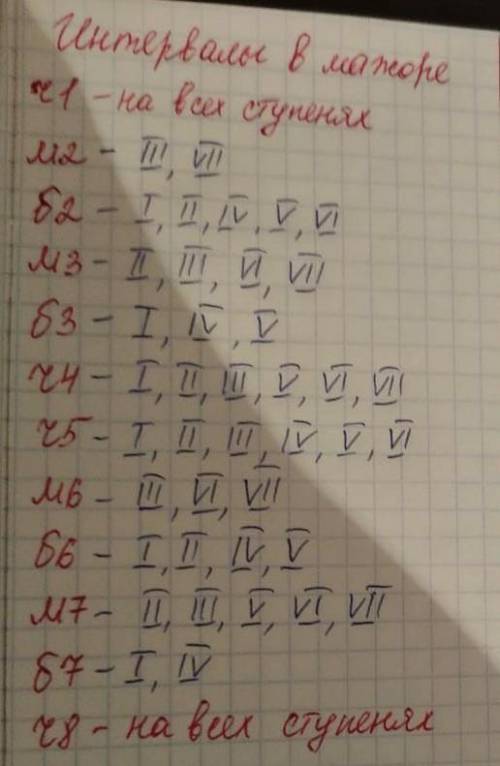 Интервалы в мажоре
ч1 - на всех ступенях
м2 - III, VII
б2 - I, II, IV, V, VI
м3 - II, III, VI, VII
б3 - I, IV, V
ч4 - I, II, III, V, VI, VII
ч5 - I, II, III, IV, V, VI
м6 - III, VI, VII
б6 - I, II, IV, V
м7 - II, III, V, VI, VII
б7 - I, IV
ч8 - на всех ступенях